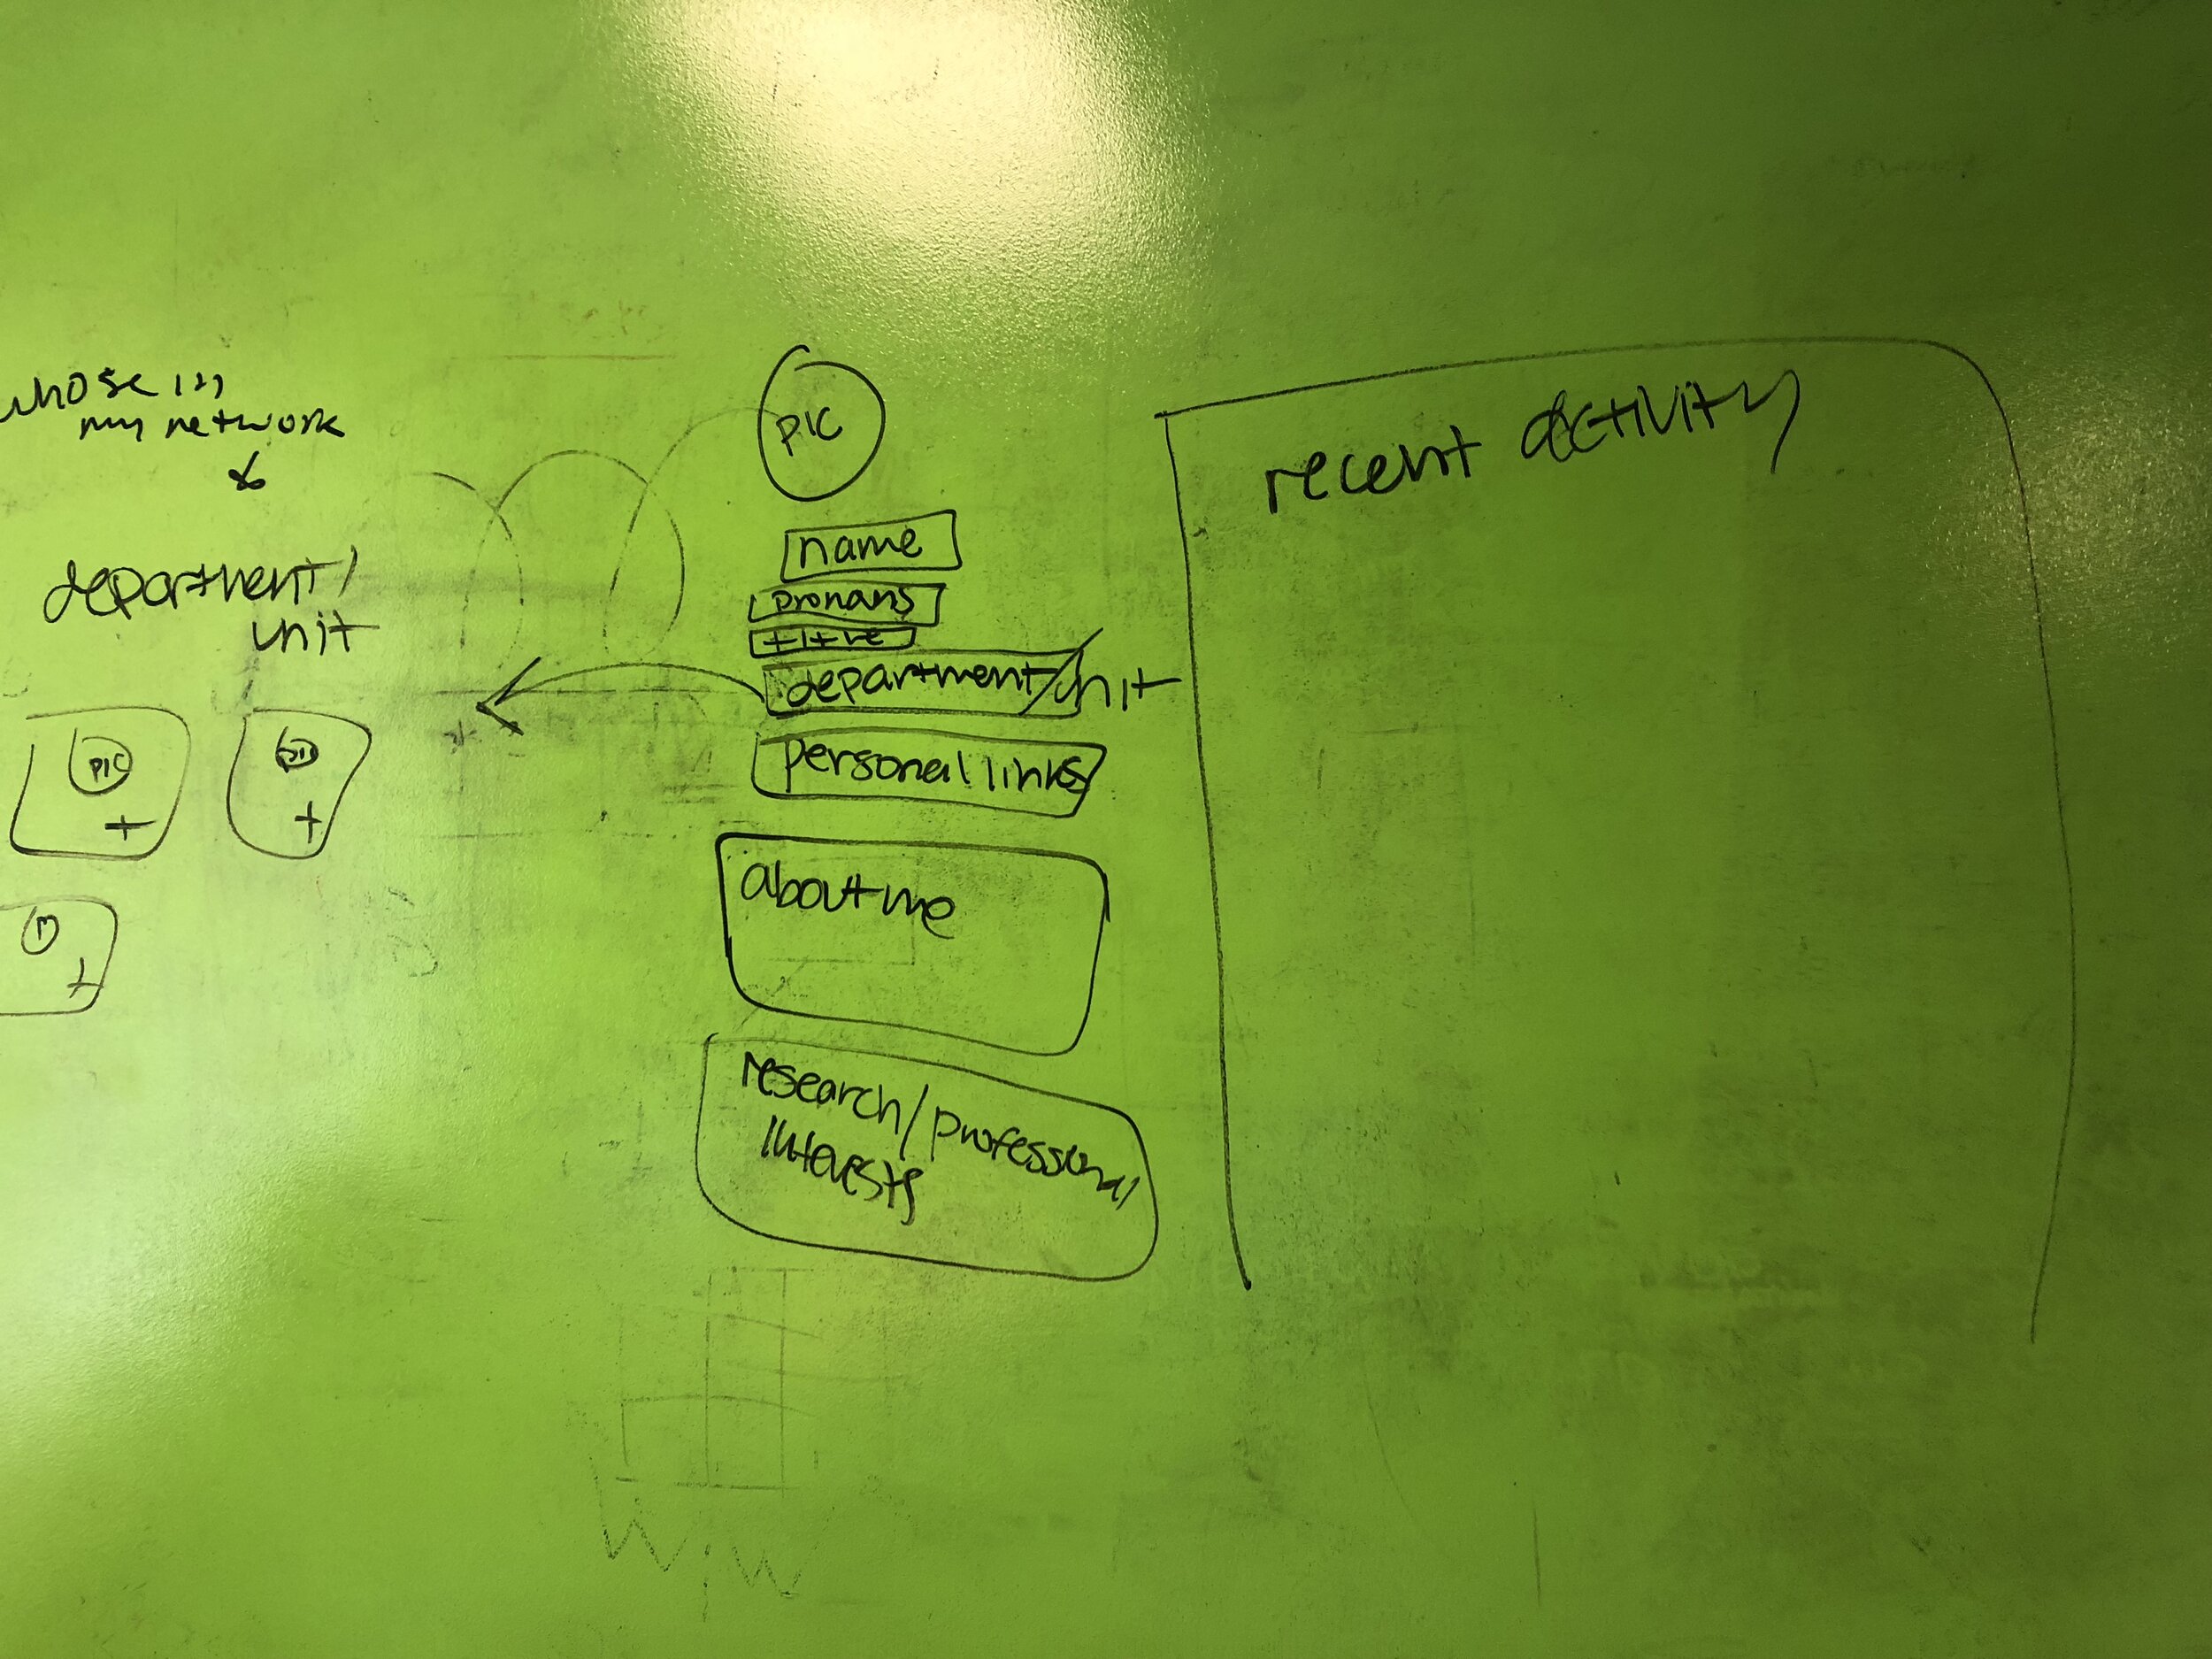 whose in
my network
&
department/
unit
pic
+
pic
+
+
pic
name
pronans
title
department/unit
personal links
about me
research/professional
interests
recent activity